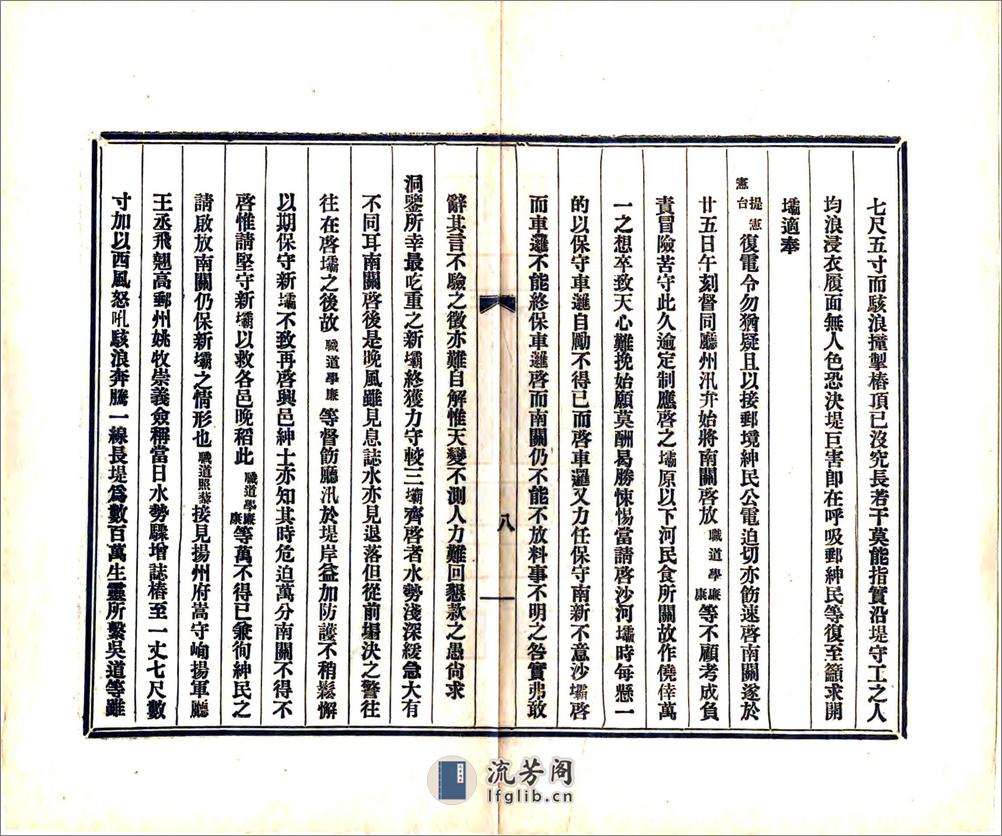 七尺五寸而駭浪撞掣樁頂已沒究長若干莫能指實沿堤守工之人
均浪浸衣履面無人色恐決堤巨害卽在呼吸郵紳民等復至籲求開
壩適奉
憲台提憲復電令勿猶疑且以接郵境紳民公電迫切亦飭速啓南關遂於
廿五日午刻督同廳州汛弁始將南關啓放職道學廉康等不顧考成負
責冒險苦守此久逾定制應啓之壩原以下河民食所關故作僥倖萬
一之想卒致天心難挽始願莫酬曷勝悚惕當請啓沙河壩時每懸一
的以保守車邏自勵不得已而啓車邏又力任保守南新不意沙壩啓
而車邏不能終保車邏啓而南關仍不能不放料事不明之咎實弗敢
辭其言不驗之徵亦難自解惟天變不測人力難回懇款之愚尙求
洞鑒所幸最吃重之新壩終獲力守較三壩齊啓者水勢淺深緩急大有
不同耳南關啓後是晚風雖見息誌水亦見退落但從前塌決之警往
往在啓壩之後故職道學廉等督飭廳汛於堤岸益加防護不稍鬆懈
以期保守新壩不致再啓興邑紳士亦知其時危迫萬分南關不得不
啓惟請堅守新壩以救各邑晚稻此職道學廉康等萬不得已兼徇紳民之
請啟放南關仍保新壩之情形也職道照藜接見揚州府嵩守峋揚軍廳
王丞飛翹高郵州姚牧崇義僉稱當日水勢驟增誌樁至一丈七尺數
寸加以西風怒吼駭浪奔騰一線長堤爲數百萬生靈所繫吳道等雖
八
流芳阁
lfglib.cn